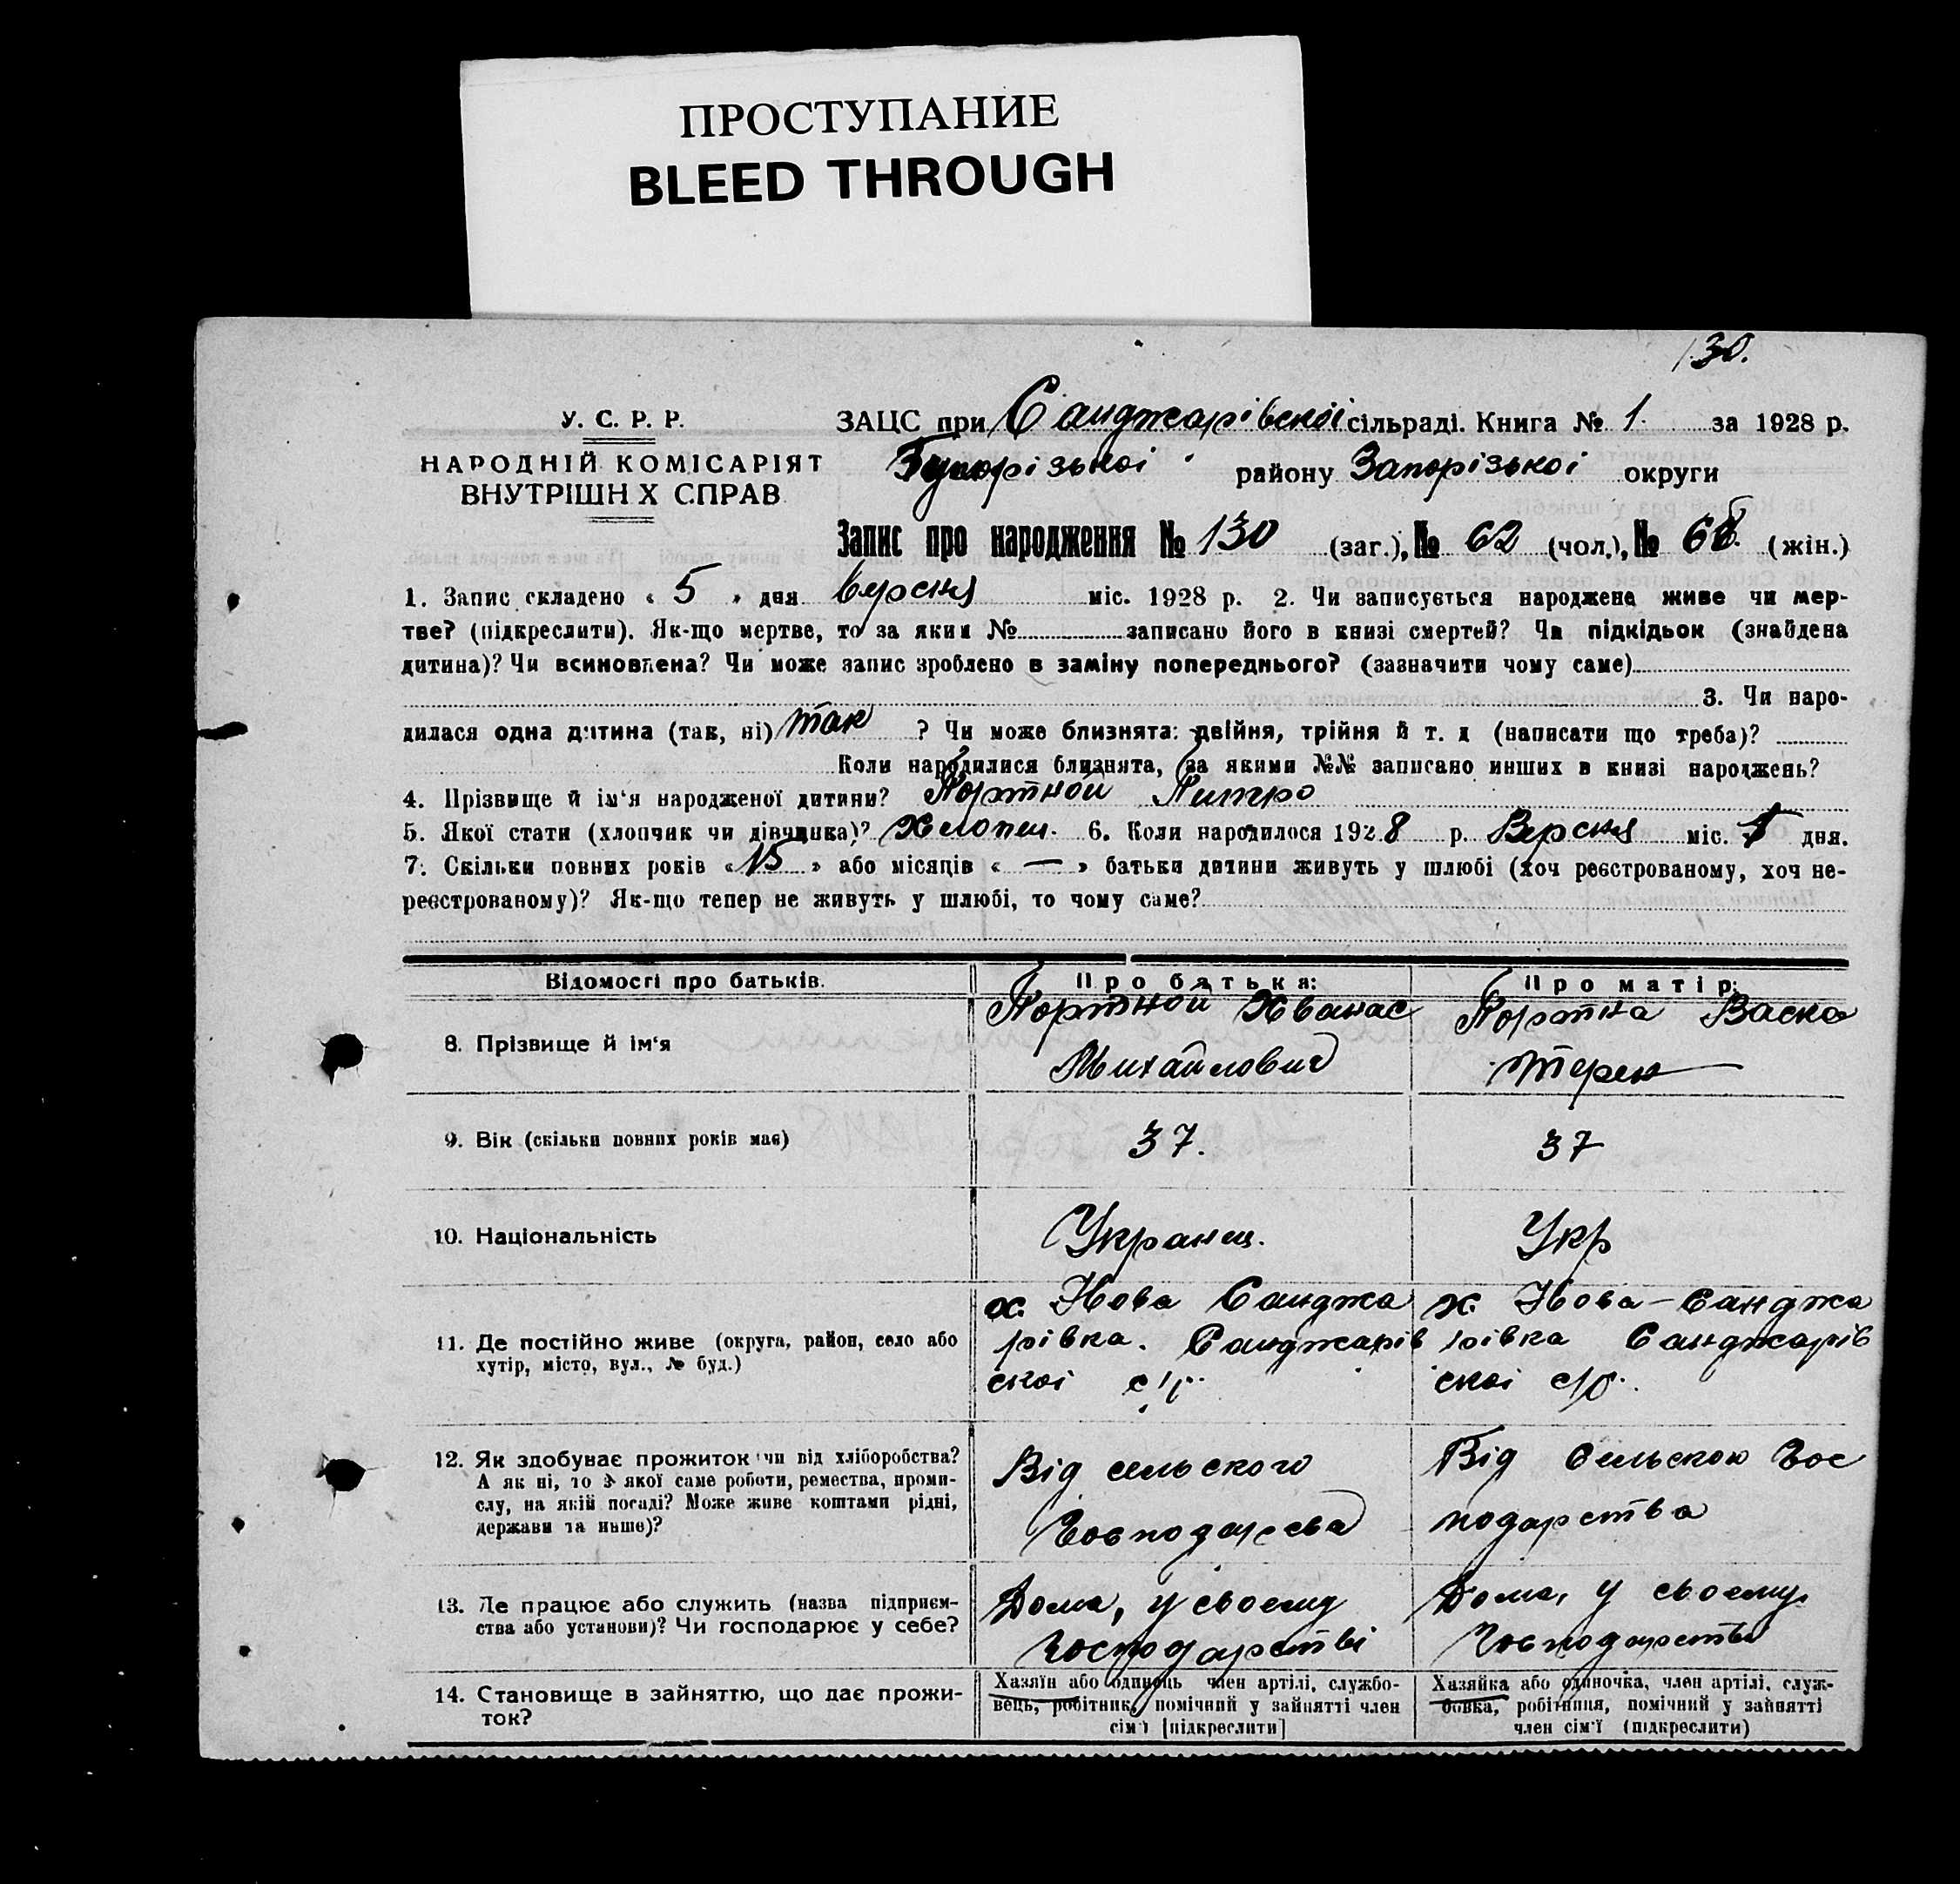 ПРОСТУПАНИЕ
BLEED THROUGH
130.
У. С. Р. Р.
НАРОДНІЙ КОМІСАРІЯТ
ВНУТРІШН Х СПРАВ
ЗАЦС при Санджарівскої сільраді. Книга № 1. за 1928 р.
району Запорізької округи
Запис про народження № 130 (заг.), № 62 (чол.), № 68 (жін.)
1. Запис складено « 5 » дня Вересня міс. 1928 р. 2. Чи записується народжене живе чи мер-
тве? (підкреслити). Як-що мертве, то за яким № записано його в книзі смертей? Чи підкідьок (знайдена
дитина)? Чи всиновлена? Чи може запис зроблено в заміну попереднього? (зазначити чому саме)
3. Чи наро-
дилася одна дитина (так, ні) так ? Чи може близнята: двійня, трійня й т. д (написати що треба)?
Коли народилися близнята, за якими №№ записано инших в книзі народжень?
4. Прізвище й ім'я народженої дитини? Портной Питро
5. Якої стати (хлопчик чи дівчинка)? Хлопец. 6. Коли народилося 1928 р. Версня міс. дня.
7. Скільки повних років « 15 » або місяців « — » батьки дитини живуть у шлюбі (хоч реєстрованому, хоч не-
реєстрованому)? Як-що тепер не живуть у шлюбі, то чому саме?
Відомості про батьків. Про батька: Про матір:
8. Прізвище й ім'я
Портной Хванас
Михайлович
Портна Васка
9. Вік (скільки повних років має) 37. 37
10. Національність Укранец. Укр
11. Де постійно живе (округа, район, село або
хутір, місто, вул., № буд.)
х. Нова Санджа
рівка. Санджарів
скої с/р.
х. Нова-Санджа
рівка Санджарів
скої с/р.
12. Як здобуває прожиток чи від хліборобства?
А як ні, то з якої саме роботи, ремества, проми-
слу, на якій посаді? Може живе коштами рідні,
держави та инше)?
Від сельского
Від Сельскою Гос
подарства
13. Де працює або служить (назва підприєм-
ства або установи)? Чи господарює у себе?
Дома, у своему
Господарстві
Дома, у своему
Господарстві
14. Становище в зайняттю, що дає прожи-
ток?
Хазяїн або одинець член артілі, службо-
вець, робітник, помічний у зайнятті член
сім'ї [підкреслити]
Хазяйка або одиночка, член артілі, служ-
бовка, робітниця, помічний у зайнятті
член сім'ї (підкреслити)